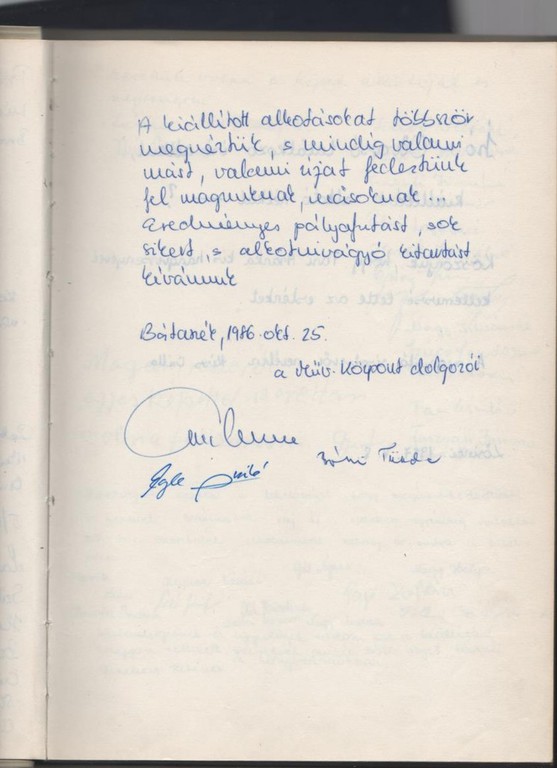 A kiállított alkotásokat többször
megnéztük, s mindig valami
mást, valami újat fedeztünk
fel magunknak, másoknak...
Eredményes pályafutást, sok
sikert, s alkotnivágyó kitartást
kívánunk
Bátaszék, 1986. okt. 25.
a Műv. Központ dolgozói
Tünde